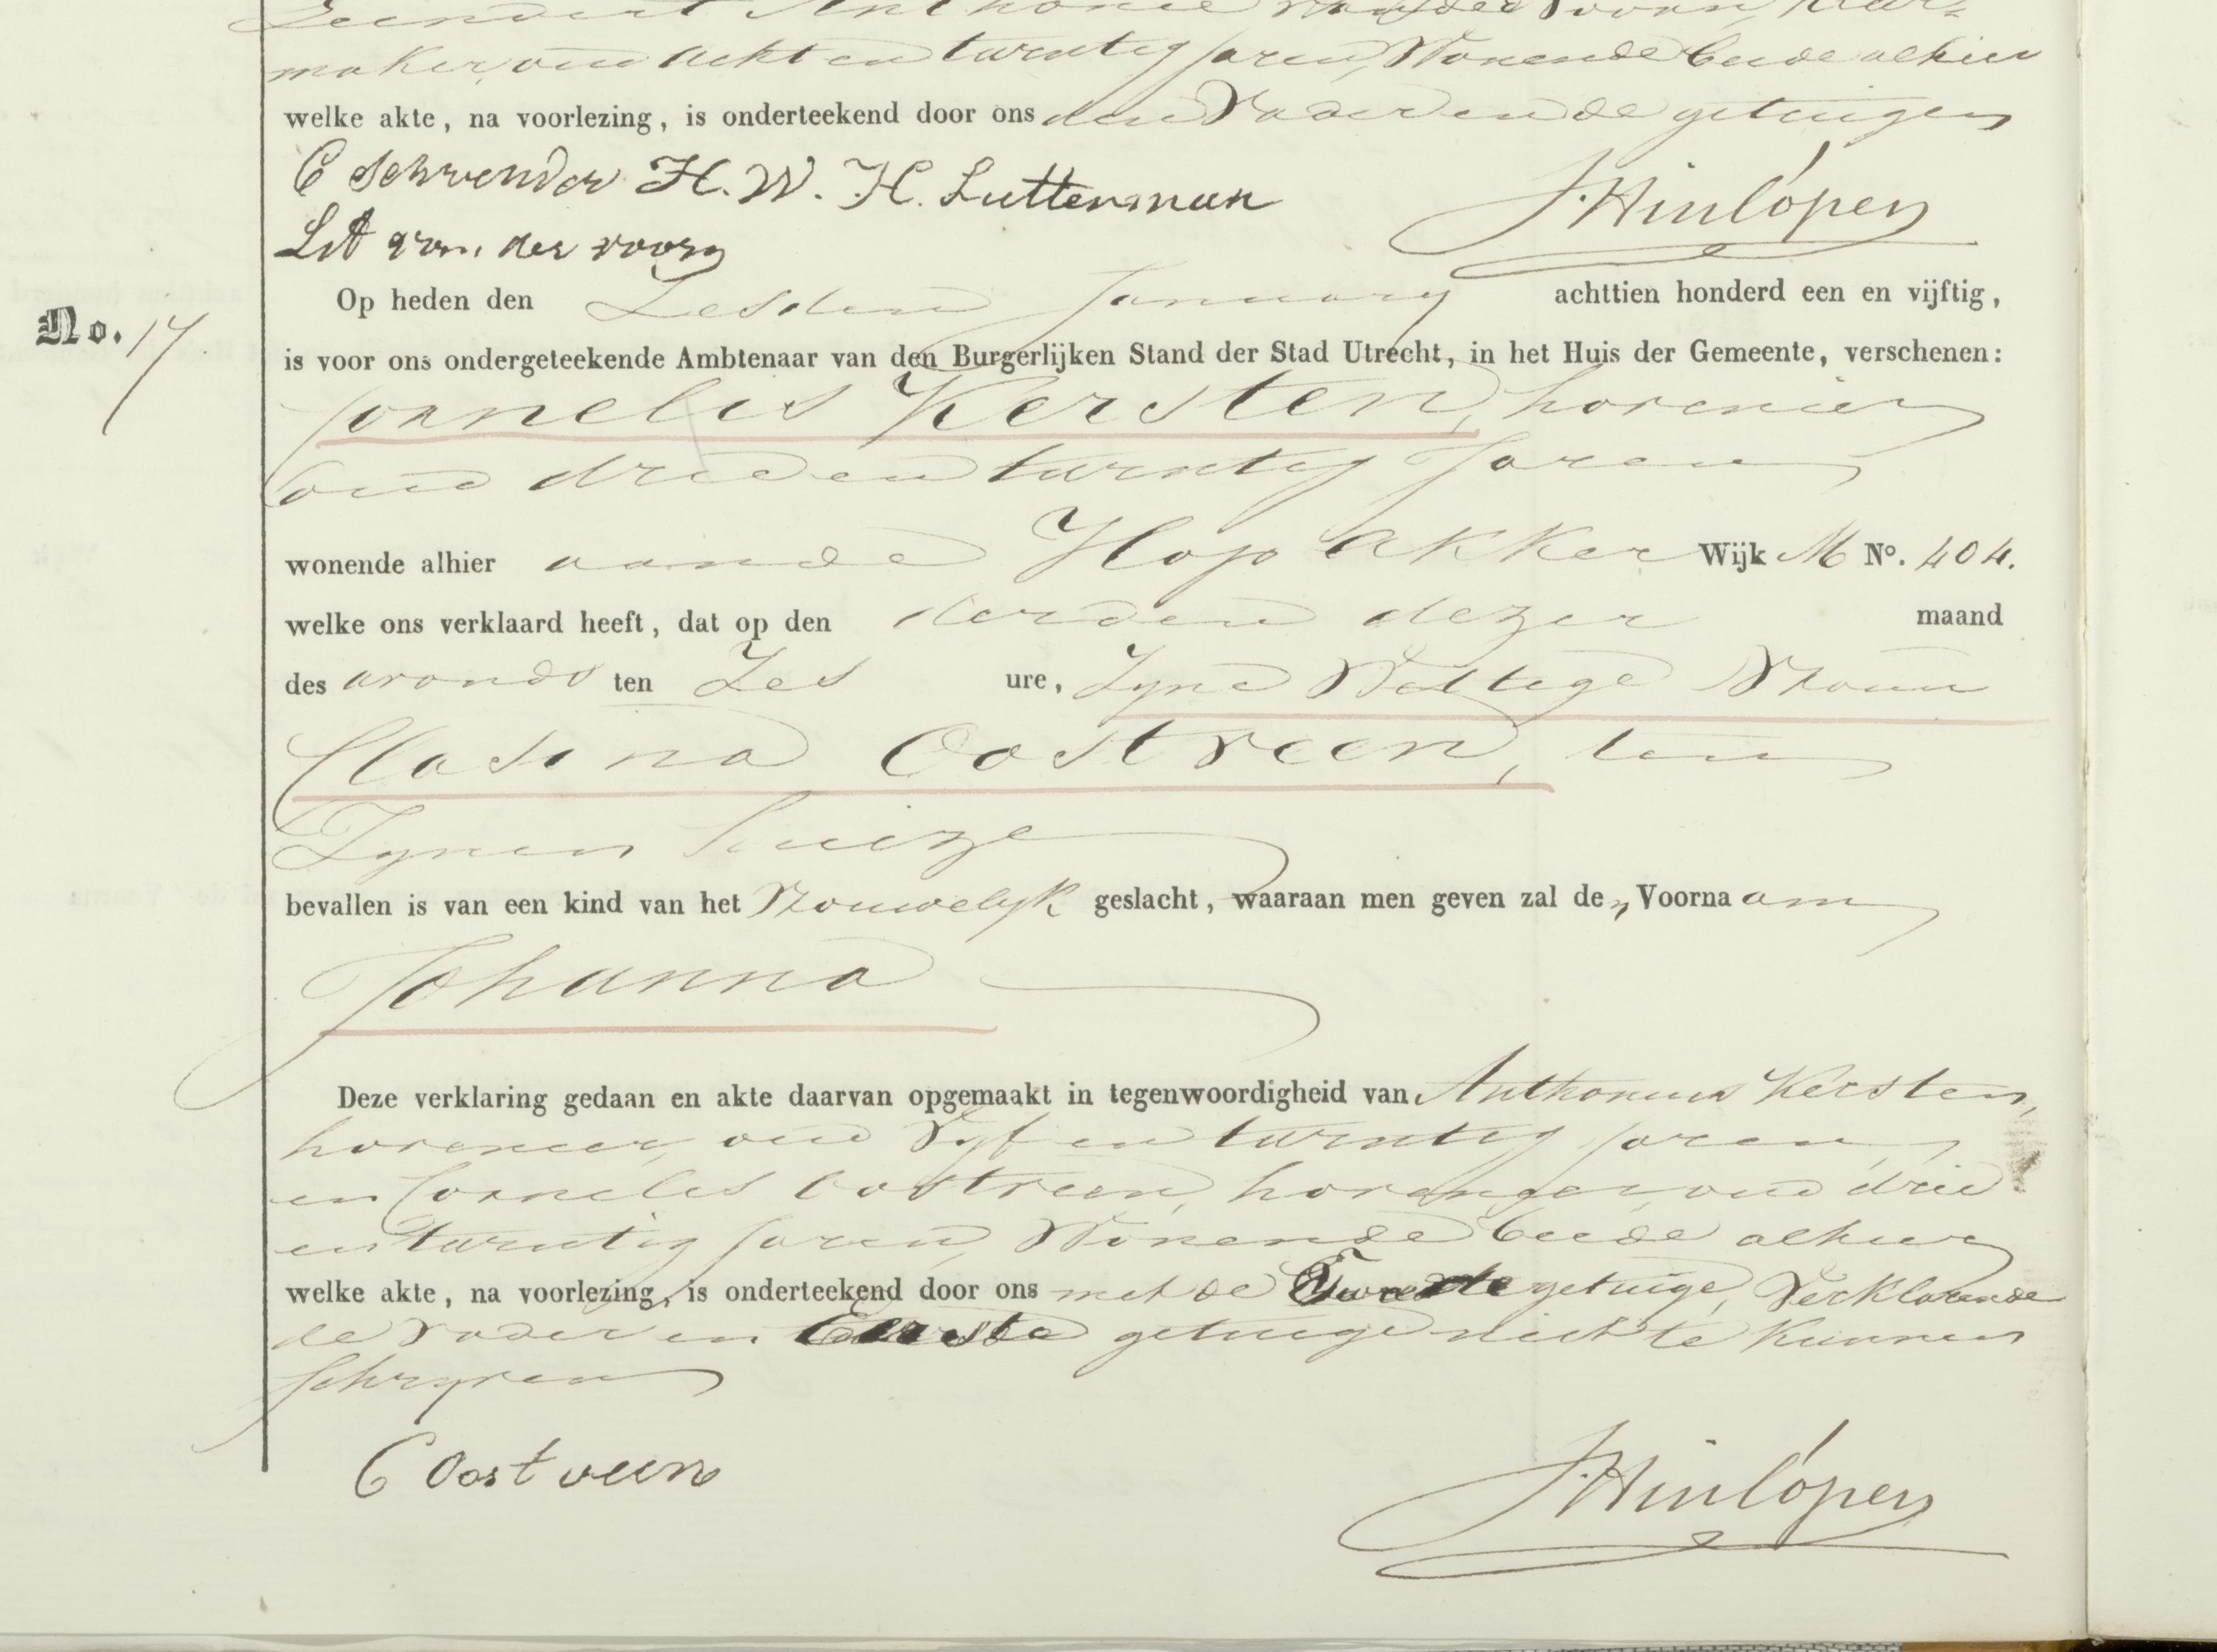 Leendert Anthonie van der Voorn, klar-
maker, oud acht en twintig jaren, Wonende beide alhier
welke akte, na voorlezing, is onderteekend door ons den Vader en de getuigen
C Schrender H. W. H. Lutterman
J. Hinlópen
LA van der voorn
Op heden den Zesden January achttien honderd een en vijftig,
No. 17
is voor ons ondergeteekende Ambtenaar van den Burgerlijken Stand der Stad Utrecht, in het Huis der Gemeente, verschenen:
Cornelis Kersten, hovenier
oud drie en twintig Jaren
wonende alhier aan de Hop akker Wijk M No. 404.
welke ons verklaard heeft, dat op den derden dezer maand
des avonds ten Zes ure, Zyne Wettige Vrouw
Clasina Oostveen, ten
Zynen huize
bevallen is van een kind van het Vrouwelyk geslacht, waaraan men geven zal den Voornaam
Johanna
Deze verklaring gedaan en akte daarvan opgemaakt in tegenwoordigheid van Anthonius Kersten,
hovenier, oud Vyf en twintig jaren,
en Cornelis Oostveen, hovenier, oud drie
en twintig jaren, Wonende beide alhier
welke akte, na voorlezing, is onderteekend door ons met de Tweede getuige, Verklarende
de Vader en Eerste getuige niet te kunnen
schryven
C Oostveen
J. Hinlópen